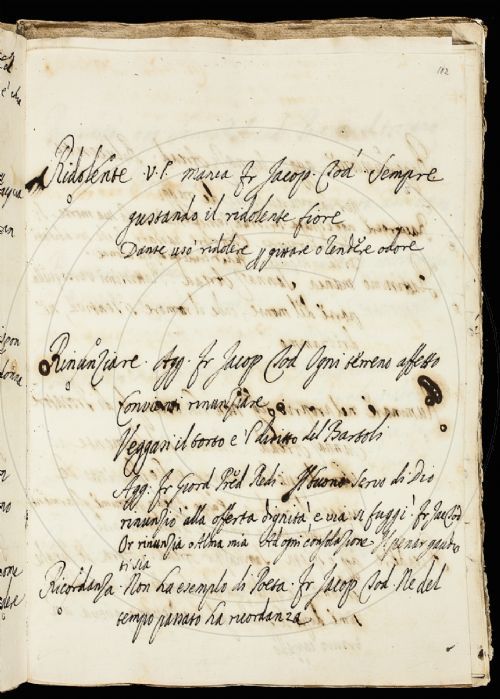 182
Ridolente V.S. manca Fr Jacop. Tod. Sempre
gustando il ridolente fiore
Dante usò ridolere p gittare o rendere odore
Rinunziare. Agg. Fr Jacop Tod Ogni terreno affetto
Convienti rinunziare
Veggasi il torto e 'l diritto del Bartoli
Agg. Fr Giord Pred Redi. Il buono servo di Dio
rinunziò alla offerta dignità e via si fuggì Fr Jac Tod
Or rinunzia o Alma mia Ad ogni consolazione Il penar gaudio
ti sia
Ricordanza. Non ha esemplo di Poeta. Fr Jacop Tod Ne del
tempo passato ha ricordanza